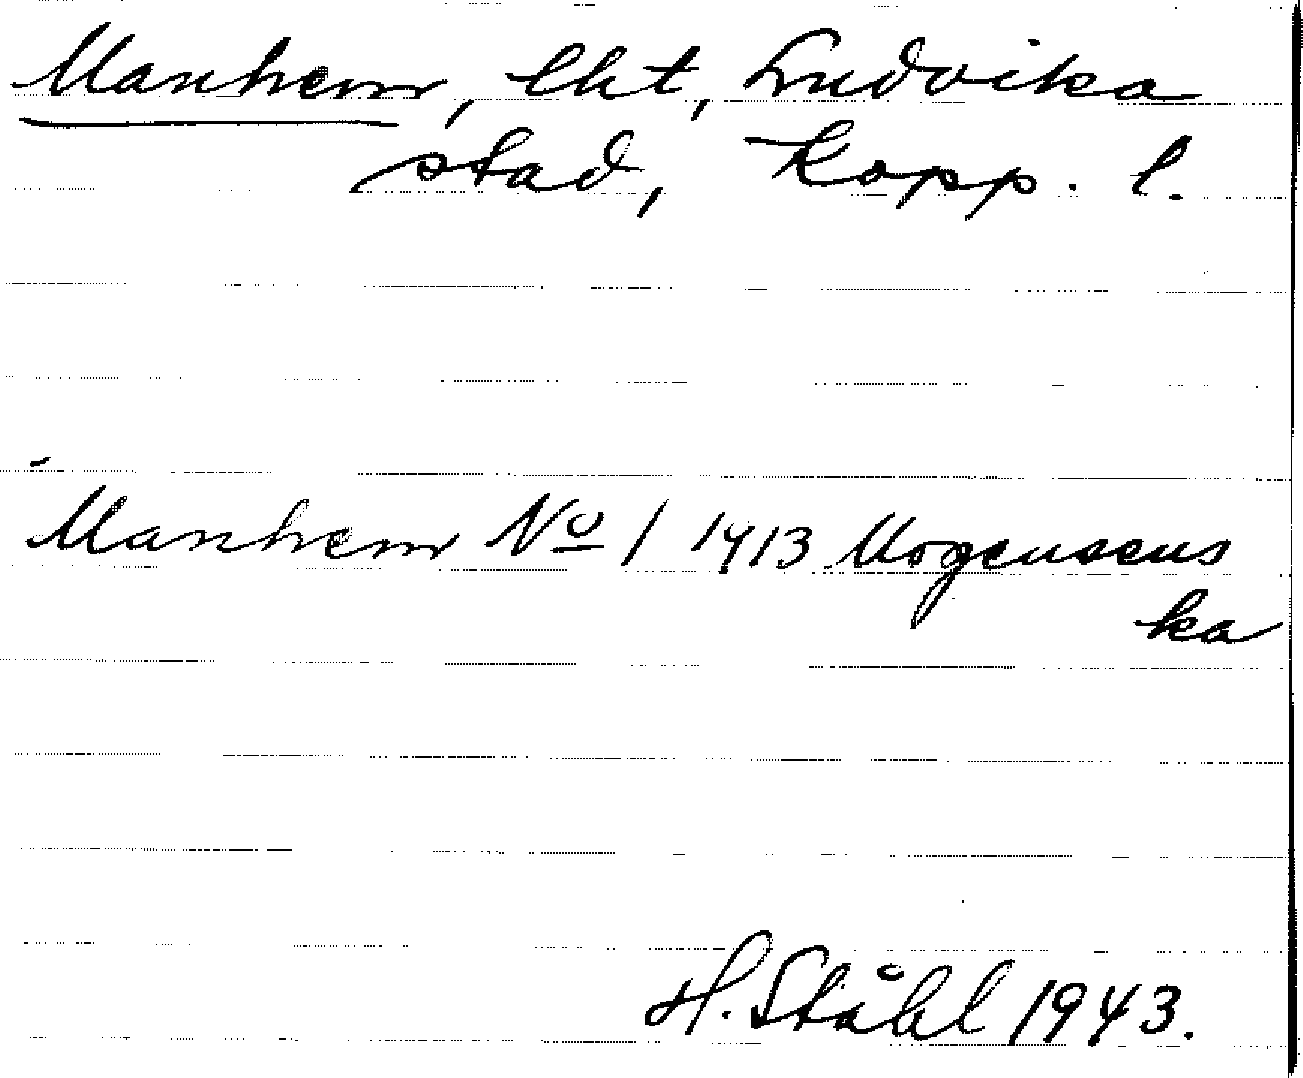 Manhem, lht, Ludvika
stad, Kopp. l.
Manhem No 1 1913 Mogensens
ka
H. Ståhl 1943.